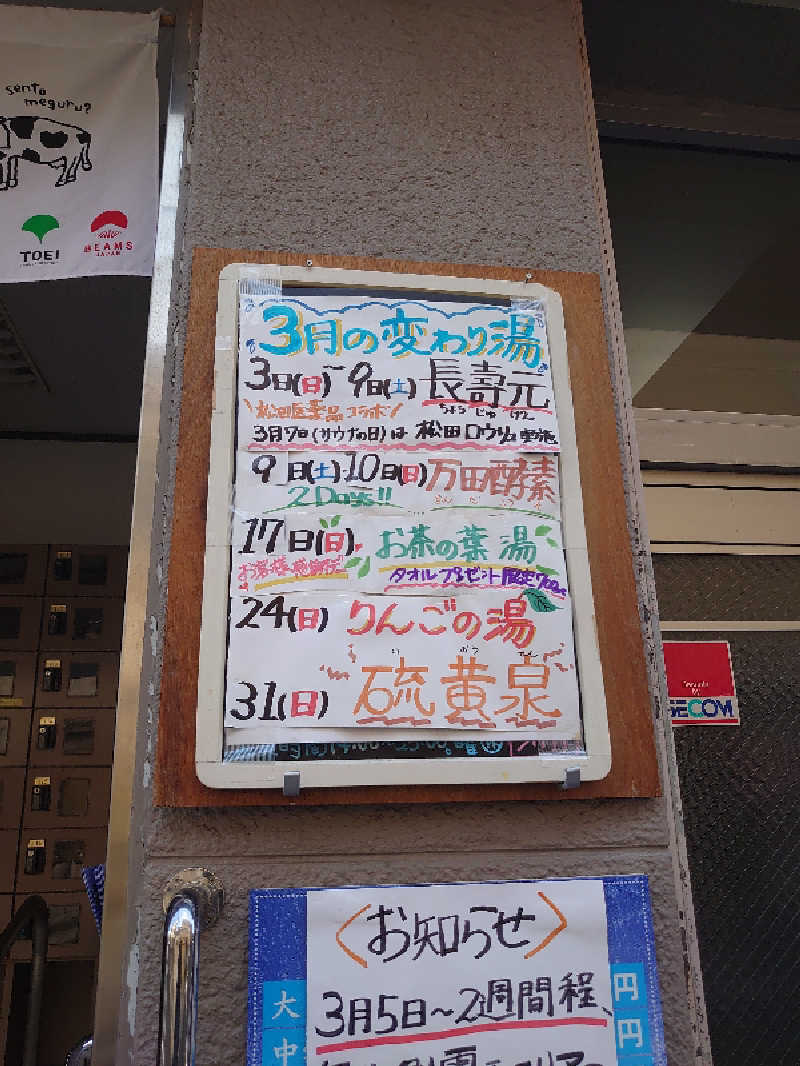 sento
meguru?
TOEI
BEAMS
JAPAN
3月の変わり湯
3日(日)~9日(土) 長壽元
ちょう じゅ げん
\松田医薬品コラボ/
3月7日(サウナの日)は 松田ロウリュ実施
9日(土)10日(日)万田酵素
2Days!!
17日(日) お茶の葉湯
お客様感謝デー
タオルプレゼント限定
24(日) りんごの湯
31(日) 硫黄泉
SECOM
〈お知らせ〉
大 3月5日~2週間程、円
中 円